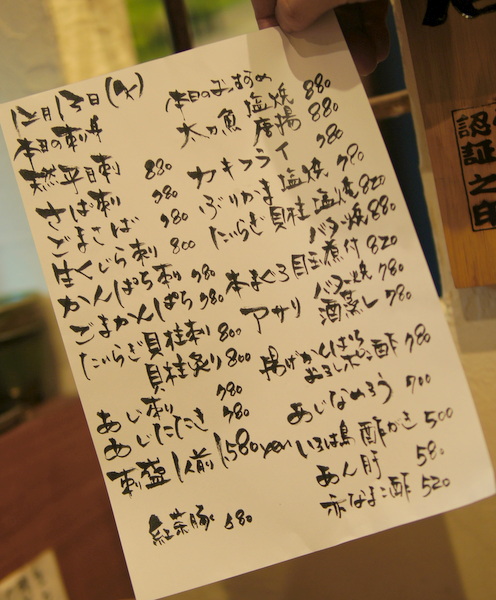 12月13日(火)
本日の刺身
天然平目刺 880
さば刺 780
ごまさば 780
生くじら刺 800
かんぱち刺 780
ごまかんぱち 780
たいらぎ貝柱刺 800
貝柱炙り 800
あじ刺 780
あじたたき 780
刺盛1人前 1580yen
紅茶豚 580
本日のおすすめ
太刀魚 塩焼 880
唐揚 880
カキフライ 780
ぶりかま塩焼 780
たいらぎ貝柱 塩焼 820
バター焼 880
本まぐろ目玉煮付 820
アサリ バター焼 780
酒蒸し 780
揚げかんぱち
おろしポン酢 780
あじなめろう 700
いろは島 酢がき 500
あん肝 580
赤なまこ酢 520
認証之印